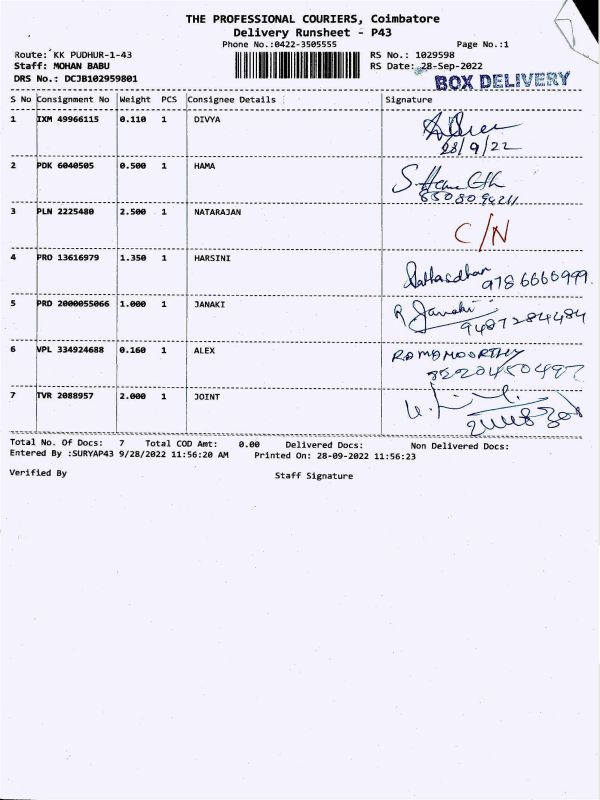 THE PROFESSIONAL COURIERS, Coimbatore
Delivery Runsheet - P43
Phone No.:0422-3505555 Page No.:1
Route: KK PUDHUR-1-43 RS No.: 1029598
Staff: MOHAN BABU RS Date: 28-Sep-2022
DRS No.: DCJB102959801 BOX DELIVERY
S No Consignment No Weight PCS Consignee Details Signature
1 IXM 49966115 0.110 1 DIVYA
28/9/22
2 PDK 6040505 0.500 1 HAMA
3 PLN 2225480 2.500 1 NATARAJAN C/N
4 PRO 13616979 1.350 1 HARSINI
9786660999
5 PRD 2000055066 1.000 1 JANAKI R Janaki
9487284484
6 VPL 334924688 0.160 1 ALEX RAMAMOORTHY
7 TVR 2088957 2.000 1 JOINT
Total No. Of Docs: 7 Total COD Amt: 0.00 Delivered Docs: Non Delivered Docs:
Entered By :SURYAP43 9/28/2022 11:56:20 AM Printed On: 28-09-2022 11:56:23
Verified By Staff Signature